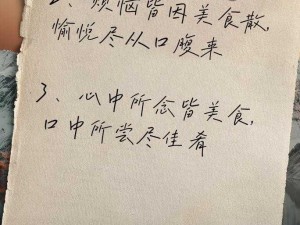 2、烦恼皆因美食散,
愉悦尽从口腹来
3、心中所念皆美食,
口中所尝尽佳肴